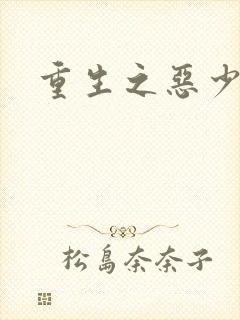 重生之惡少
松島奈奈子